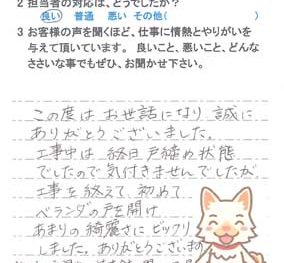 2 担当者の対応は、どうでしたか？
良い 普通 悪い その他( )
3 お客様の声を聞くほど、仕事に情熱とやりがいを
与えて頂いています。 良いこと、悪いこと、どんな
ささいな事でもぜひ、お聞かせ下さい。
この度は お世話になり 誠に
ありがとうございました。
工事中は 終日 戸締め 状態
でしたので 気付きませんでしたが
工事を 終えて、初めて
ベランダの 戸を 開け
あまりの 綺麗さに ビックリ
しました。ありがとうございます